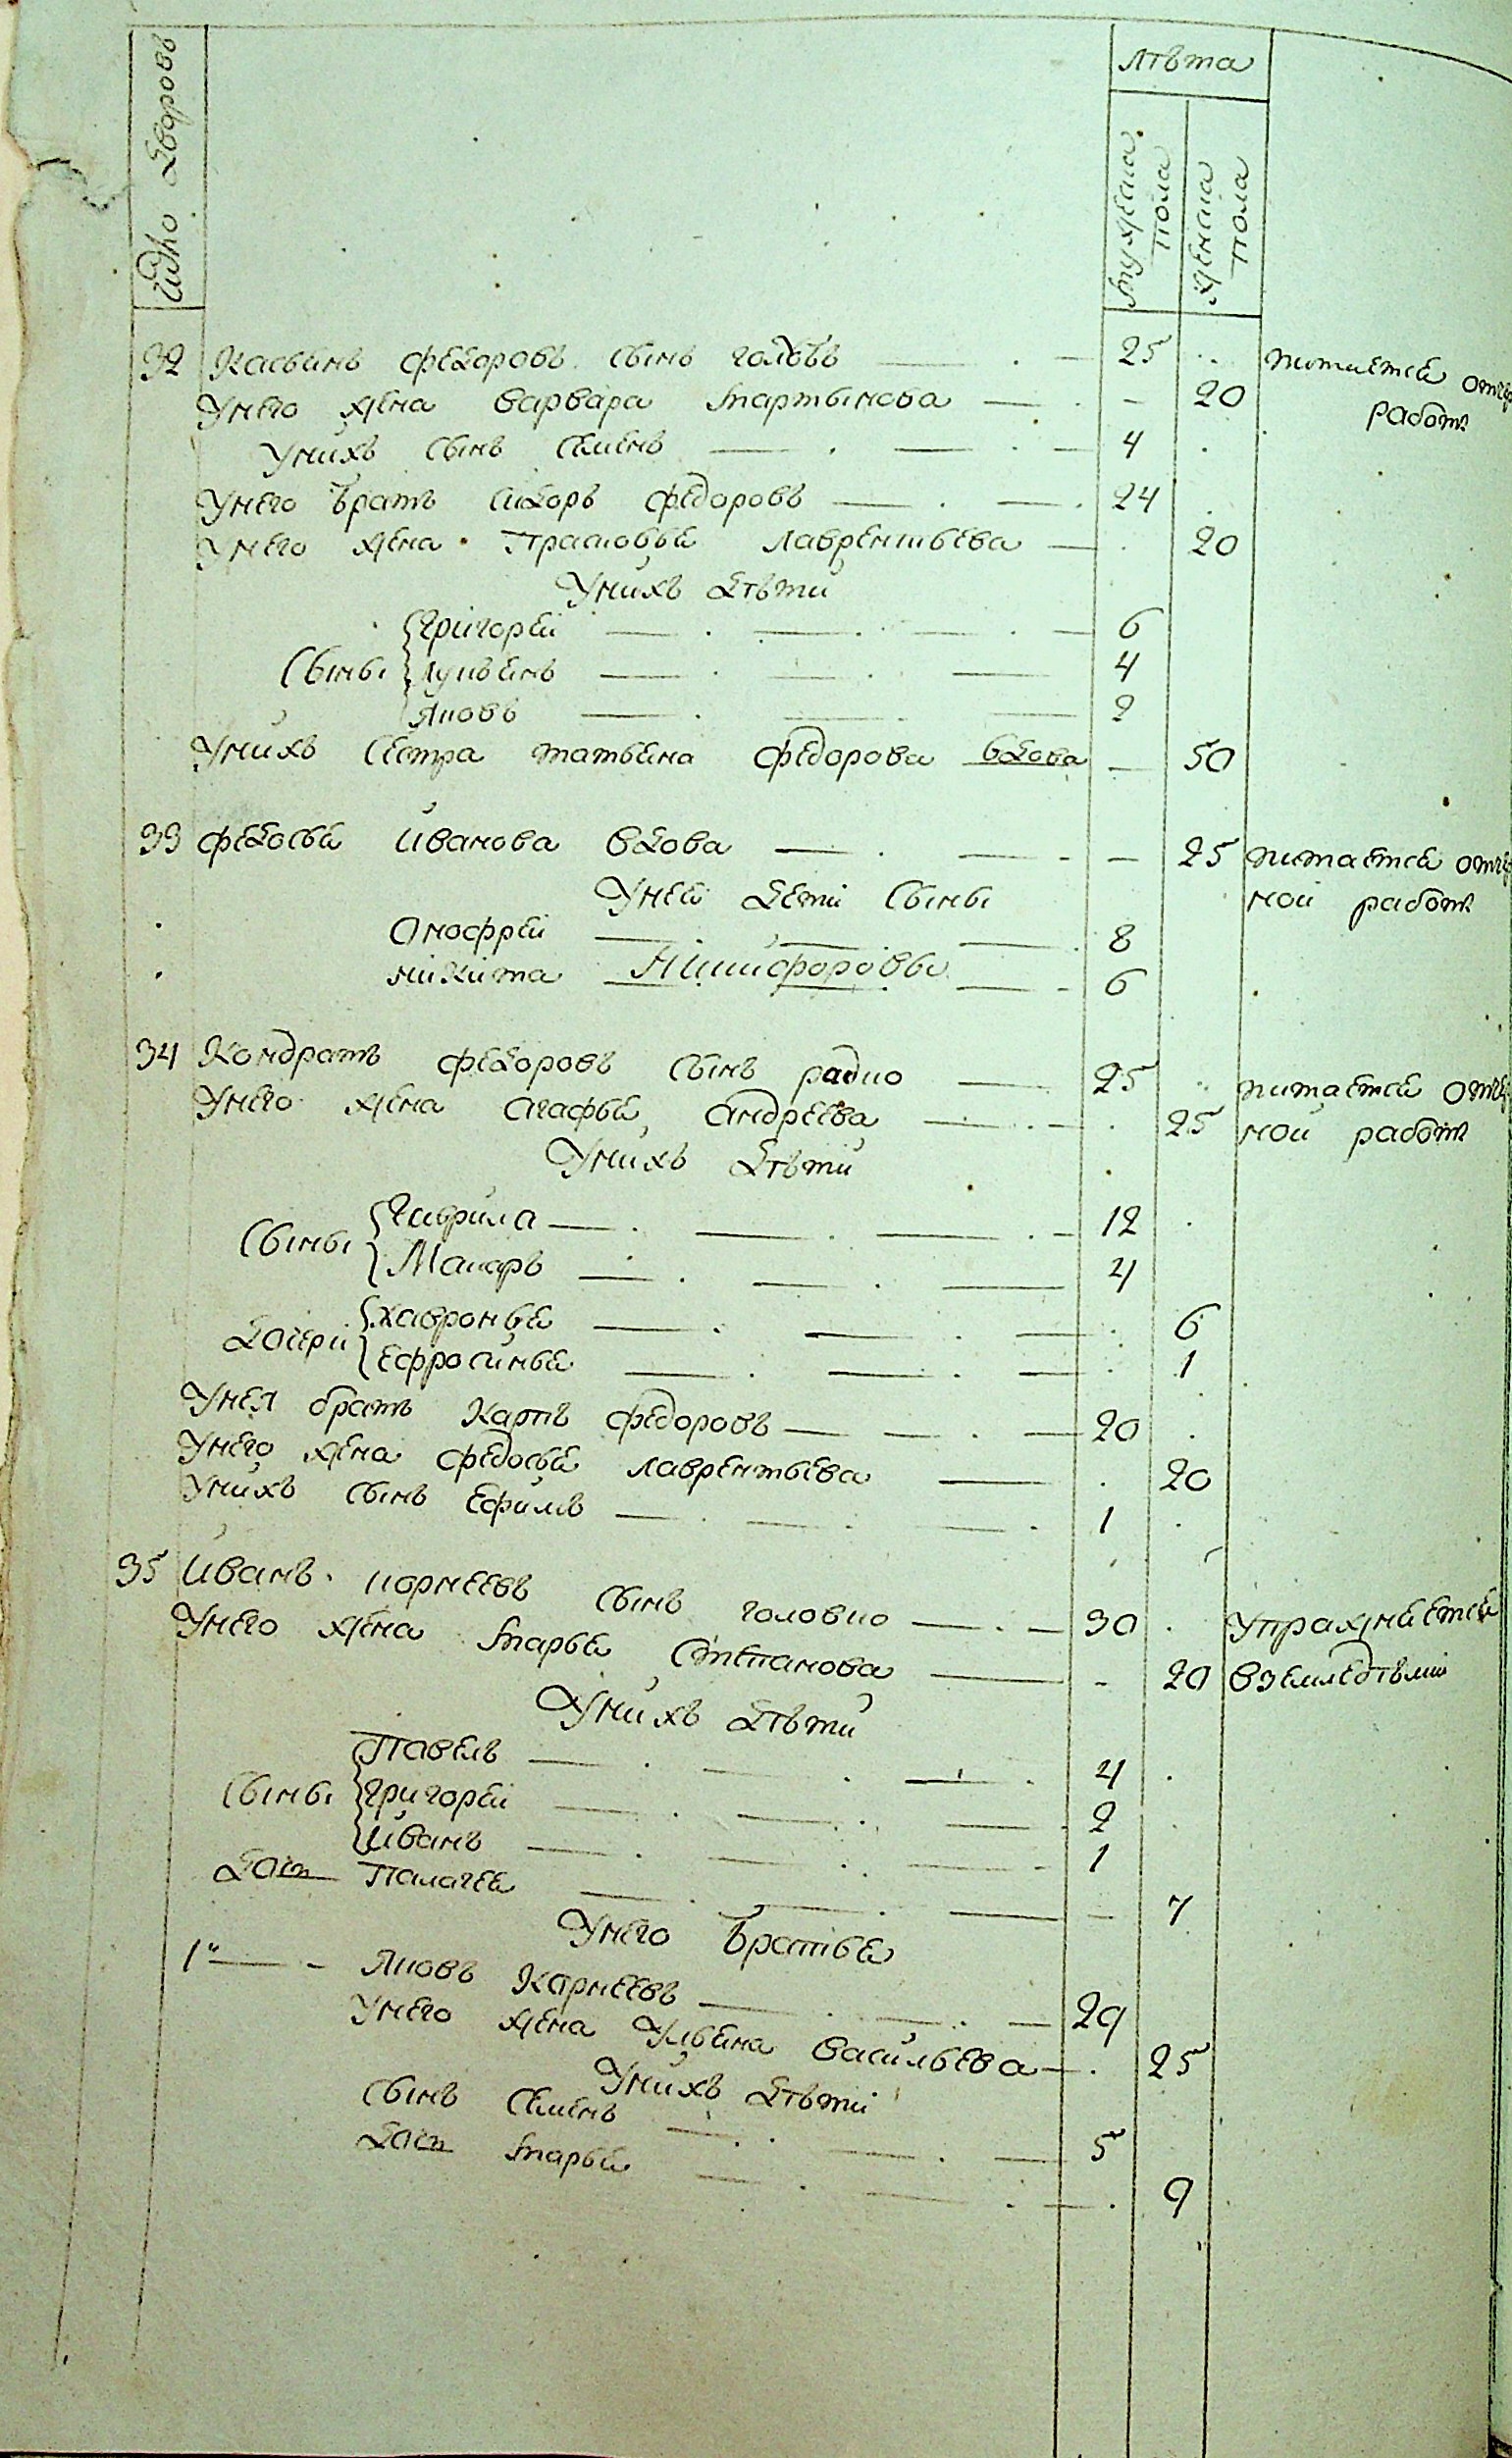 лѣта
Число дворовъ
мужеска пола
женска пола
32 Касьянъ федоровъ сынъ 25 питается отчер
У него жена варвара мартынова 20 работ
У нихъ сынъ семенъ 4
У него братъ сидоръ федоровъ 24
У него жена Прасковья лаврентьева 20
У нихъ дѣти
григорей 6
сыны лукьянъ 4
яковъ 2
У нихъ сестра татьяна федорова вдова 50
33 федосья иванова вдова 25 питается отчер
У ней дети сыны ной работ
Онофрей 8
никита Никифоровы 6
34 Кондратъ федоровъ сынъ радко 25 питается отчер
У него жена агафья андреева 25 ной работ
У нихъ дѣти
гаврила 12
сыны
Макаръ 4
хавронья 6
дочери
ефросинья 1
У нея братъ карпъ федоровъ 20
У него жена федосья лаврентьева 20
У нихъ сынъ ефимъ 1
35 иванъ корнеевъ сынъ головко 30 упражняется
У него жена марья степанова 20 вземледѣлии
У нихъ дѣти
Павелъ 4
сыны григорей 2
иванъ 1
дочь Палагея 7
У него братья
1й яковъ Карнеевъ 29
У него жена Ульяна васильева 25
У нихъ дѣти
сынъ семенъ 5
дочь марья 9